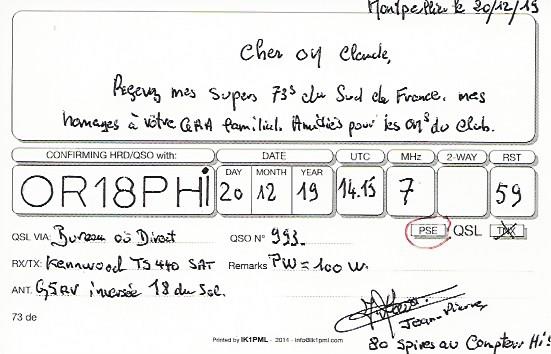 Montpellier le 20/12/19
Cher OM Claude,
Recevez mes supers 73s du Sud de France. mes
homages à votre familial. Amitiés pour les OMs du Club.
CONFIRMING HRD/QSO with: DATE UTC MHz 2-WAY RST
DAY MONTH YEAR
OR18PHi 20 12 19 14.15 7 59
PSE QSL TNX
QSL VIA: Bureau où Direct QSO N° 993.
RX/TX: Kennwood TS 440 SAT Remarks PW=100 W.
ANT. G5RV inversée 18 du Sol.
73 de Jean-Pierre
Printed by IK1PML - 2014 - info@ik1pml.com
80 Spires au Compteur Hi's